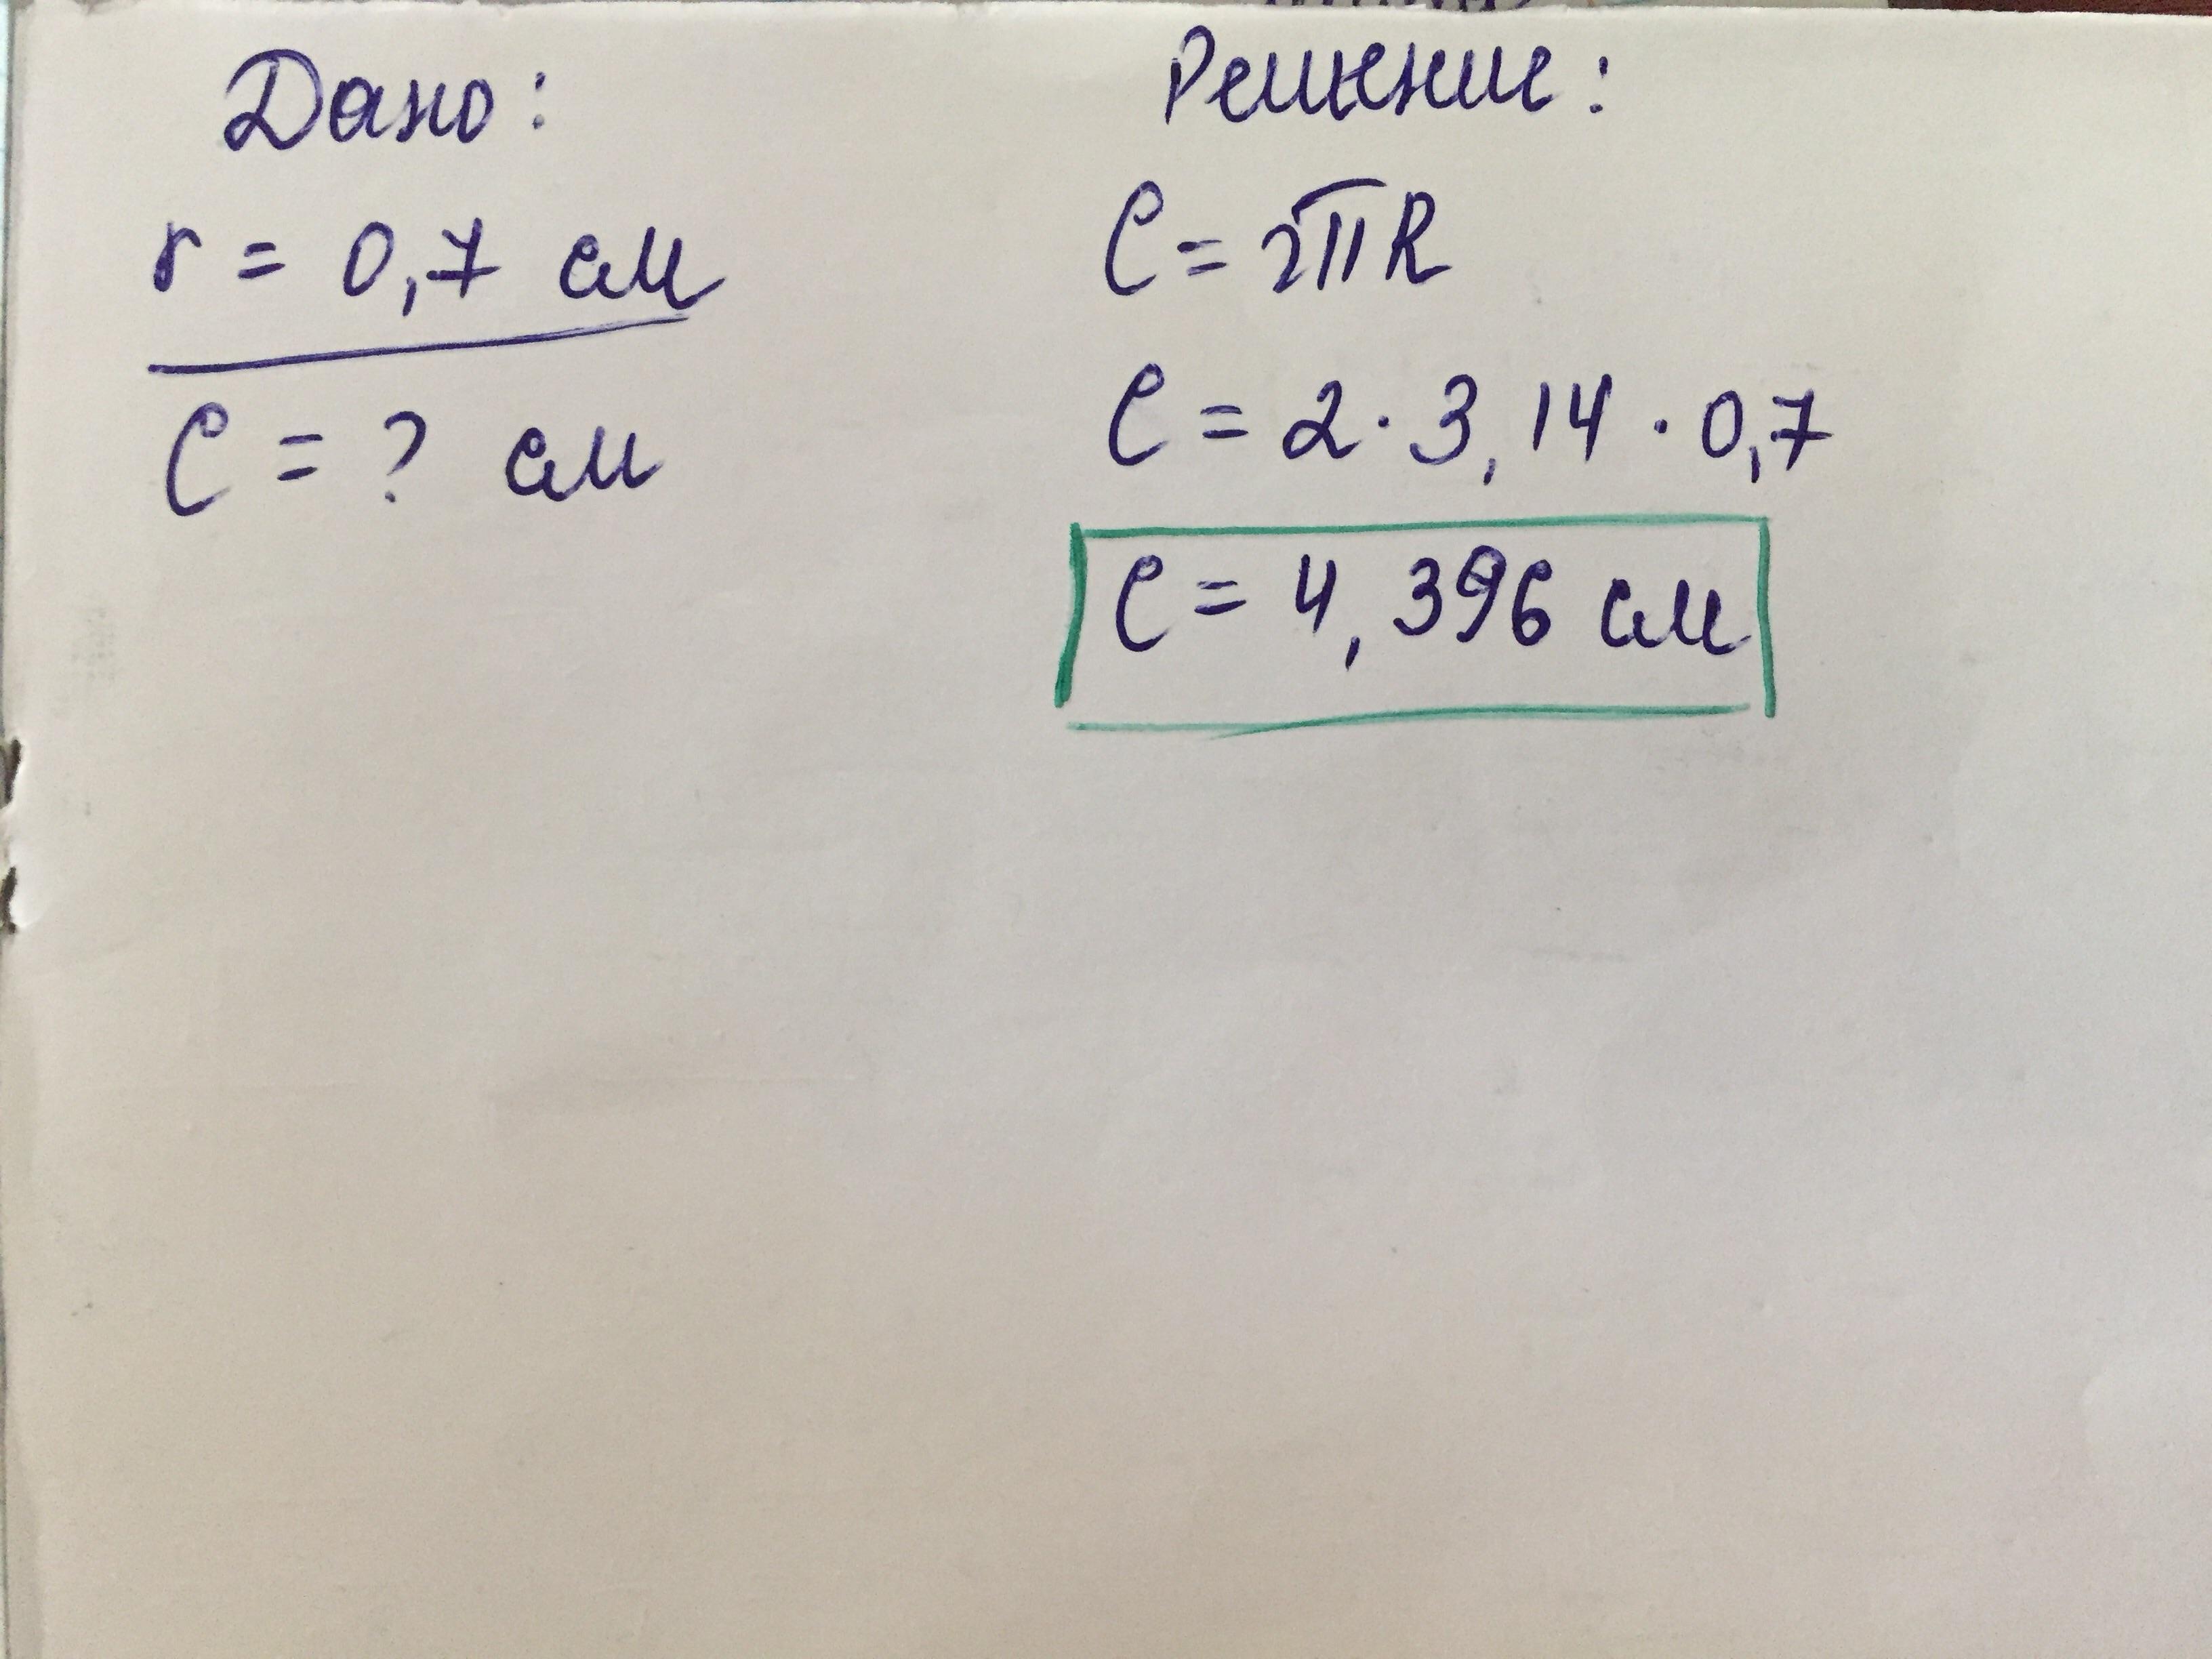 Дано:
r = 0,7 см
C = ? см
Решение:
C = 2πR
C = 2 · 3,14 · 0,7
C = 4,396 см